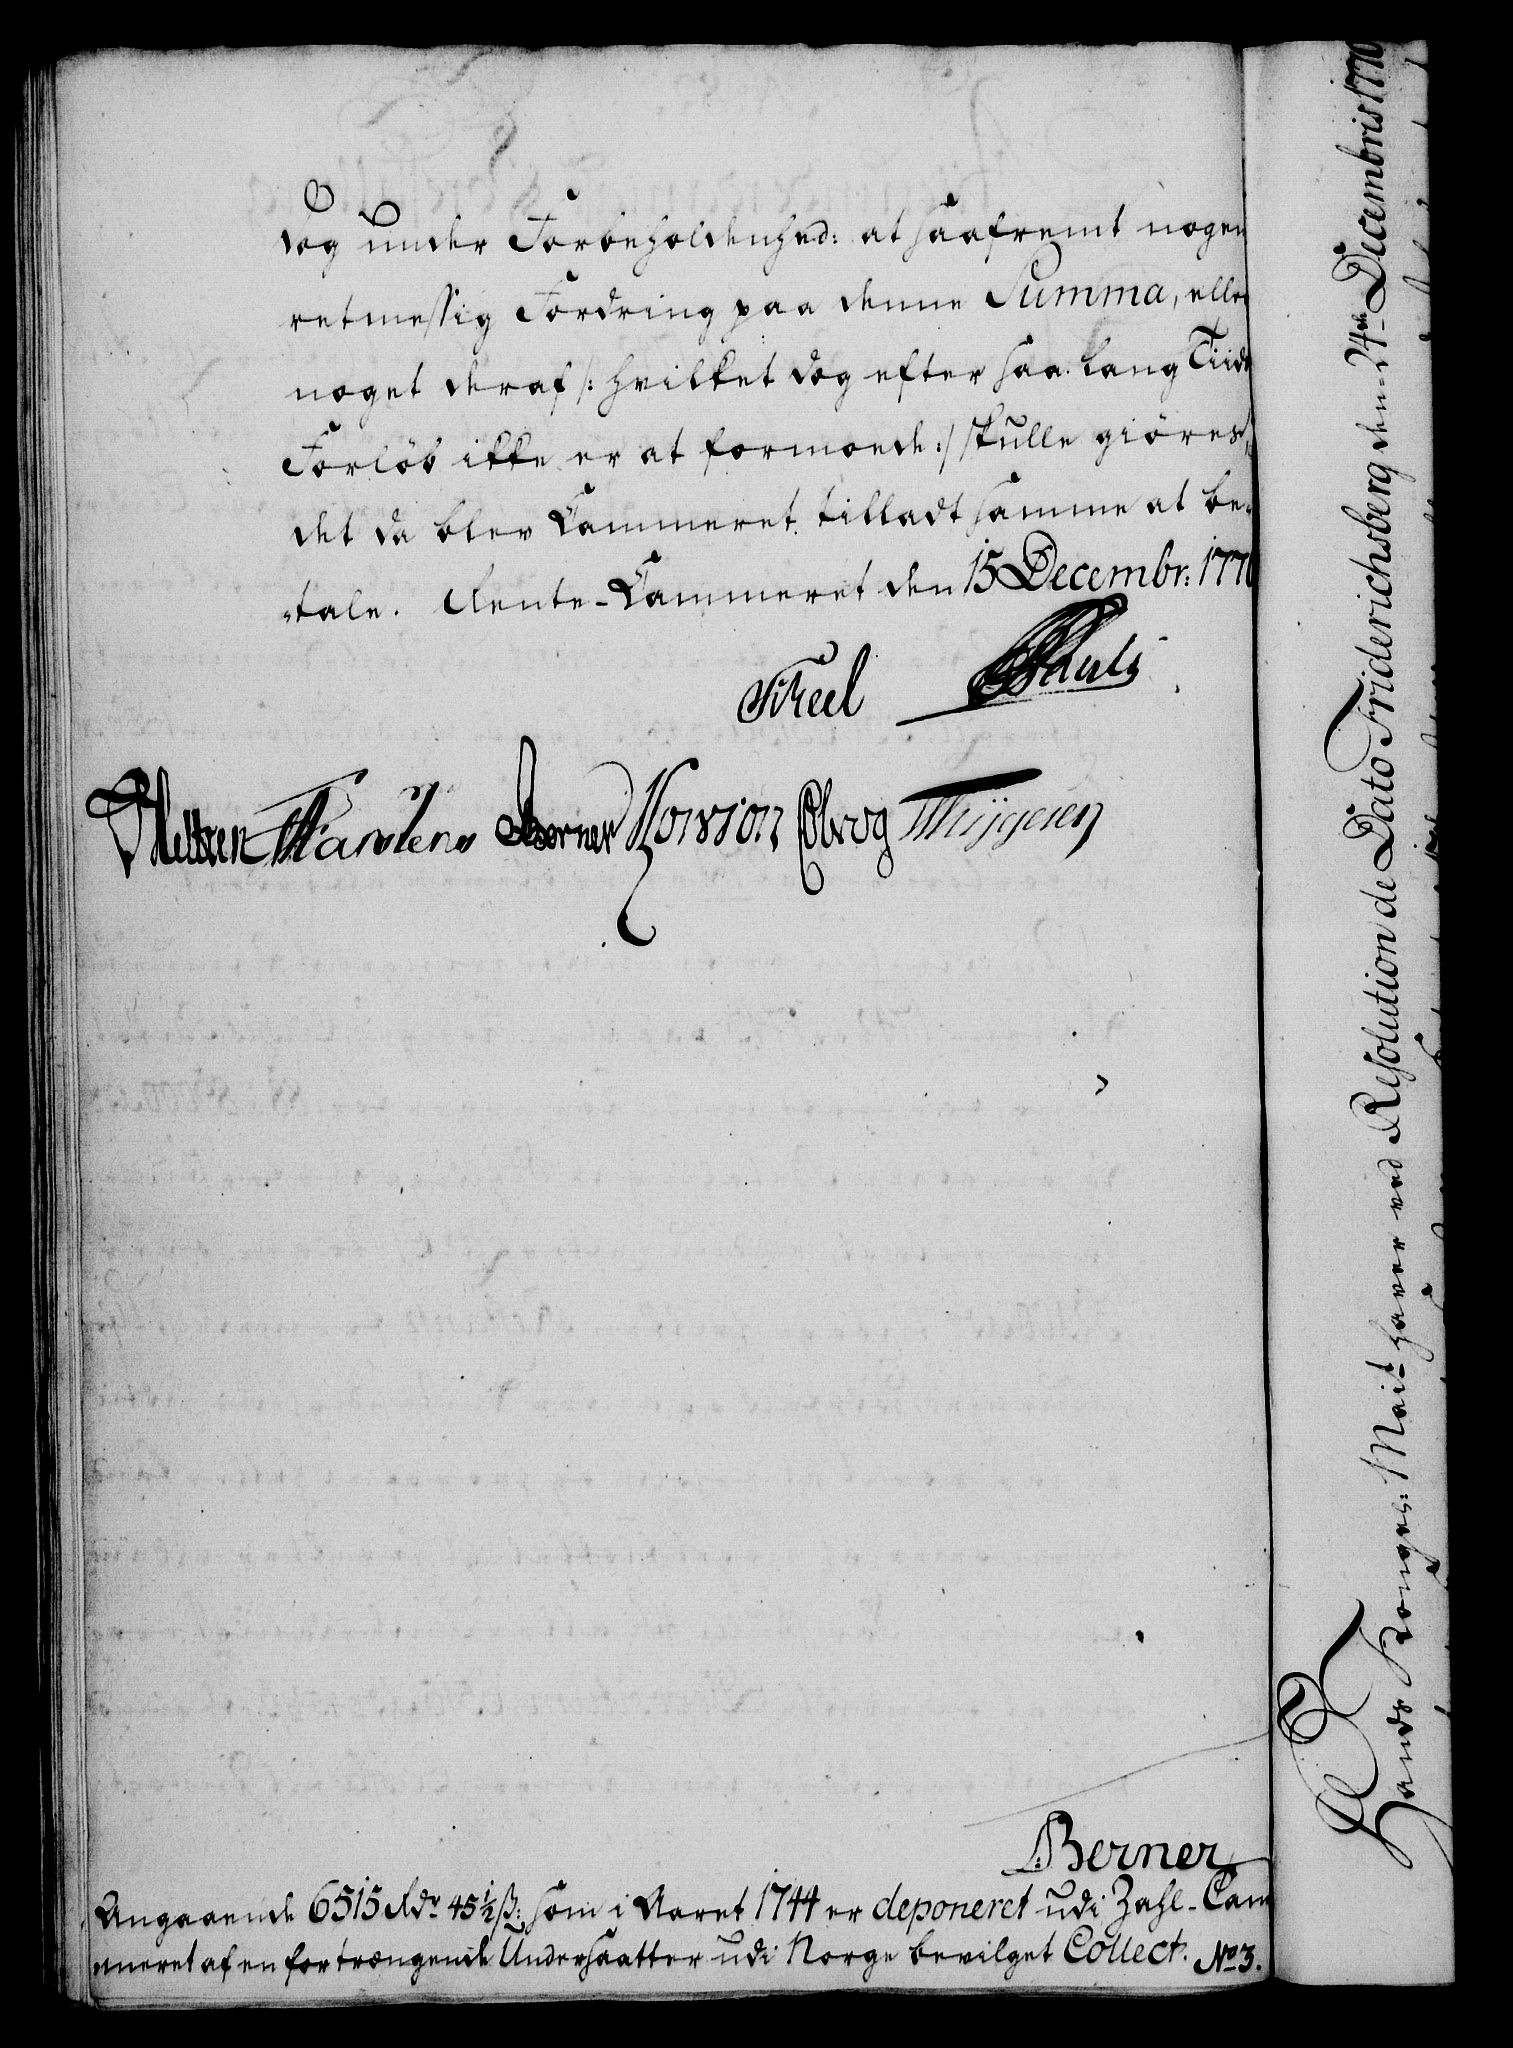 dog under Forbeholdenhed: at saafremt nogen
retmessig Fordring paa denne Summa, eller
noget deraf /: hvilket dog efter saa lang Tiids
Forløb ikke er at formoede :/ skulle giøres,
det da blev Cammeret tilladt samme at be-
tale. Rente-Cammeret den 15 Decembr: 1770
Scheel
Meltzen Karstens Berner Hovson Obvog Thygesen
Berner
Angaaende 6515 Rdr 45½ ß: som i Aaret 1744 er deponeret udi Zahl-Cam
meret af en for trængende Undersaatter udi Norge bevilget Collect. No 3.
Hands Konges: Mait. haver ved Resolution de Dato Friderichsberg den 24de Decembris 1770